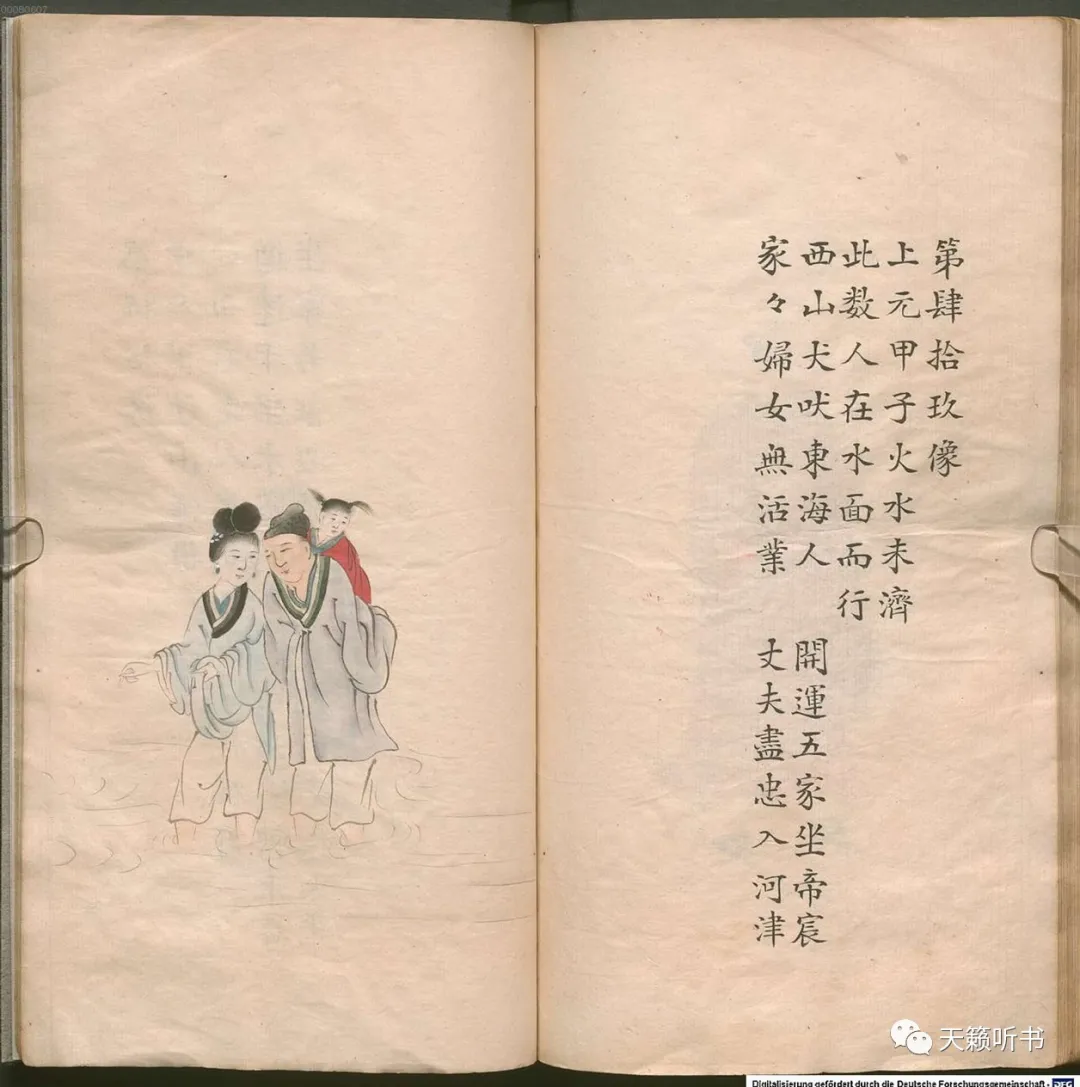 00080607
第肆拾玖像
上元甲子火水未濟
此数人在水面而行
西山犬吠東海人 開運五家坐帝宸
家々婦女無活業 丈夫盡忠入河津
天籁听书
Digitalisierung gefördert durch die Deutsche Forschungsgemeinschaft - DFG